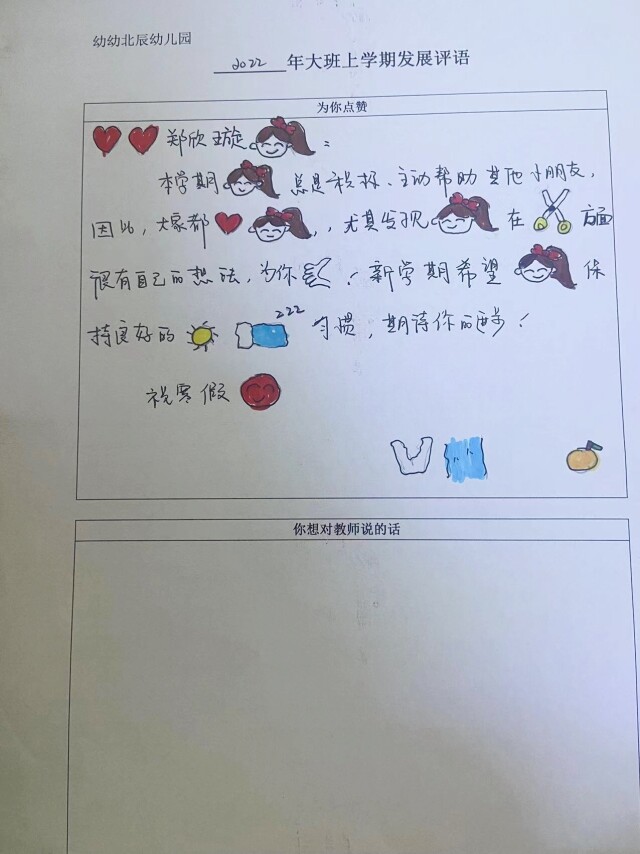 幼幼北辰幼儿园
2022年大班上学期发展评语
为你点赞
郑欣璇：
本学期总是积极、主动帮助其他小朋友，
因此，大家都，，尤其发现在方面
很有自己的想法，为你！新学期希望保
持良好的zzz习惯，期待你的进步！
祝寒假
你想对教师说的话